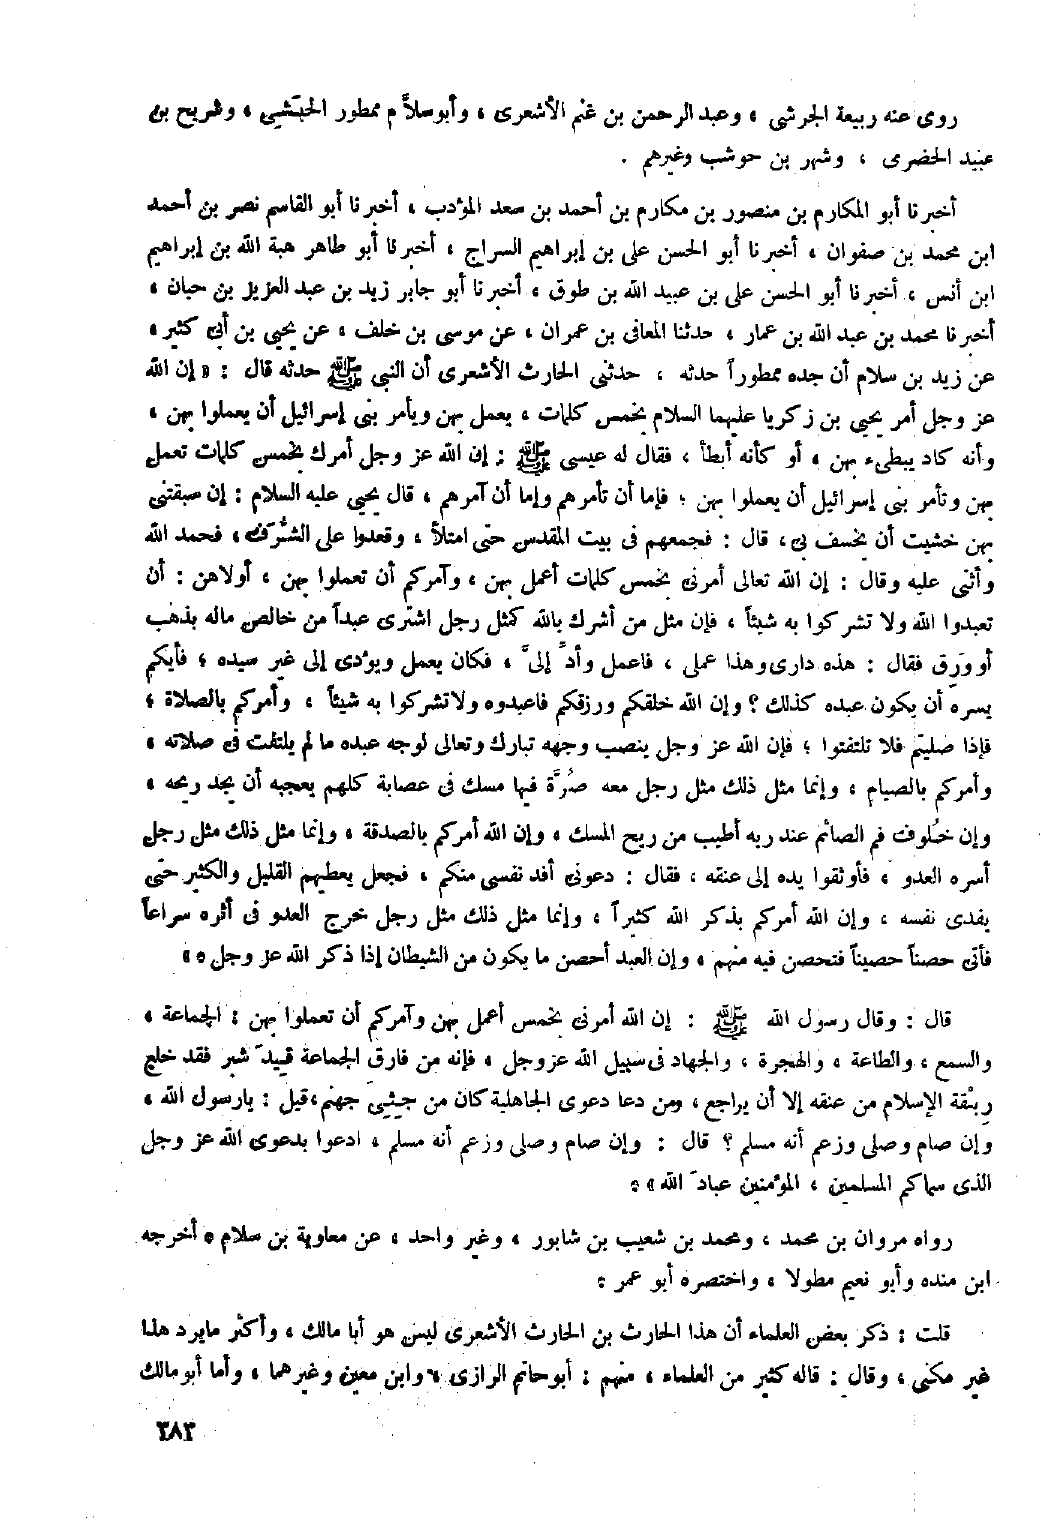 روى عنه ربيعة الجرشى ، وعبد الرحمن بن غنم الأشعرى ، وأبو سلاَّم ممطور الحبَشِي ، وشريح بن
عبيد الحضرى ، وشهر بن حوشب وغيرهم .
أخبرنا أبو المكارم بن منصور بن مكارم بن أحمد بن سعد المؤدب ، أخبرنا أبو القاسم نصر بن أحمد
ابن محمد بن صفوان ، أخبرنا أبو الحسن على بن إبراهيم السراج ، أخبرنا أبو طاهر هبة الله بن إبراهيم
ابن أنس ، أخبرنا أبو الحسن على بن عبيد الله بن طوق ، أخبرنا أبو جابر زيد بن عبد العزيز بن حيان ،
أخبرنا محمد بن عبد الله بن عمار ، حدثنا المعافى بن عمران ، عن موسى بن خلف ، عن يحيى بن أبى كثير ،
عن زيد بن سلام أن جده ممطوراً حدثه ، حدثنى الحارث الأشعرى أن النبي ﷺ حدثه قال : « إن الله
عز وجل أمر يحيى بن زكريا عليهما السلام بخمس كلمات ، يعمل بهن ويأمر بنى إسرائيل أن يعملوا بهن ،
وأنه كاد يبطىء بهن ، أو كأنه أبطأ ، فقال له عيسى ﷺ : إن الله عز وجل أمرك بخمس كلمات تعمل
بهن وتأمر بنى إسرائيل أن يعملوا بهن ؛ فإما أن تأمرهم وإما أن آمرهم ، قال يحيى عليه السلام : إن سبقتنى
بهن خشيت أن يخسف بى ، قال : فجمعهم فى بيت المقدس حتى امتلأ ، وقعدوا على الشُّرَف ، فحمد الله
وأثنى عليه وقال : إن الله تعالى أمرنى بخمس كلمات أعمل بهن ، وآمركم أن تعملوا بهن ، أولاهن : أن
تعبدوا الله ولا تشركوا به شيئاً ، فإن مثل من أشرك بالله كمثل رجل اشترى عبداً من خالص ماله بذهب
أو وَرِق فقال : هذه دارى وهذا عملى ، فاعمل وأدِّ إلىَّ ، فكان يعمل ويؤدى إلى غير سيده ؛ فأيكم
يسره أن يكون عبده كذلك ؟ وإن الله خلقكم ورزقكم فاعبدوه ولا تشركوا به شيئاً ، وأمركم بالصلاة ؛
فإذا صليتم فلا تلتفتوا ؛ فإن الله عز وجل ينصب وجهه تبارك وتعالى لوجه عبده ما لم يلتفت فى صلاته ،
وأمركم بالصيام ، وإنما مثل ذلك مثل رجل معه صُرَّة فيها مسك فى عصابة كلهم يعجبه أن يجد ريحه ،
وإن خُلوف فم الصائم عند ربه أطيب من ريح المسك ، وإن الله أمركم بالصدقة ، وإنما مثل ذلك مثل رجل
أسره العدو ، فأوثقوا يده إلى عنقه ، فقال : دعونى أفد نفسى منكم ، فجعل يعطيهم القليل والكثير حتى
يفدى نفسه ، وإن الله أمركم بذكر الله كثيراً ، وإنما مثل ذلك مثل رجل خرج العدو فى أثره سراعاً
فأتى حصناً حصيناً فتحصن فيه منهم ، وإن العبد أحصن ما يكون من الشيطان إذا ذكر الله عز وجل » .
قال : وقال رسول الله ﷺ : إن الله أمرنى بخمس أعمل بهن وآمركم أن تعملوا بهن : الجماعة ،
والسمع ، والطاعة ، والهجرة ، والجهاد فى سبيل الله عز وجل ، فإنه من فارق الجماعة قِيدَ شبر فقد خلع
رِبْقة الإسلام من عنقه إلا أن يراجع ، ومن دعا دعوى الجاهلية كان من جِثِىِّ جهنم ، قيل : يا رسول الله ،
وإن صام وصلى وزعم أنه مسلم ؟ قال : وإن صام وصلى وزعم أنه مسلم ، ادعوا بدعوى الله عز وجل
الذى سماكم المسلمين ، المؤمنين عبادَ الله » .
رواه مروان بن محمد ، ومحمد بن شعيب بن شابور ، وغير واحد ، عن معاوية بن سلام . أخرجه
ابن منده وأبو نعيم مطولا ، واختصره أبو عمر .
قلت : ذكر بعض العلماء أن هذا الحارث بن الحارث الأشعرى ليس هو أبا مالك ، وأكثر ما يرد هذا
غير مكنى ، وقال : قاله كثير من العلماء ، منهم : أبو حاتم الرازى ، وابن معين وغيرهما ، وأما أبو مالك
٣٨٣